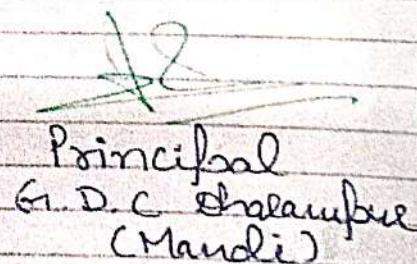 Principal
G.D.C Dharampur
(Mandi)